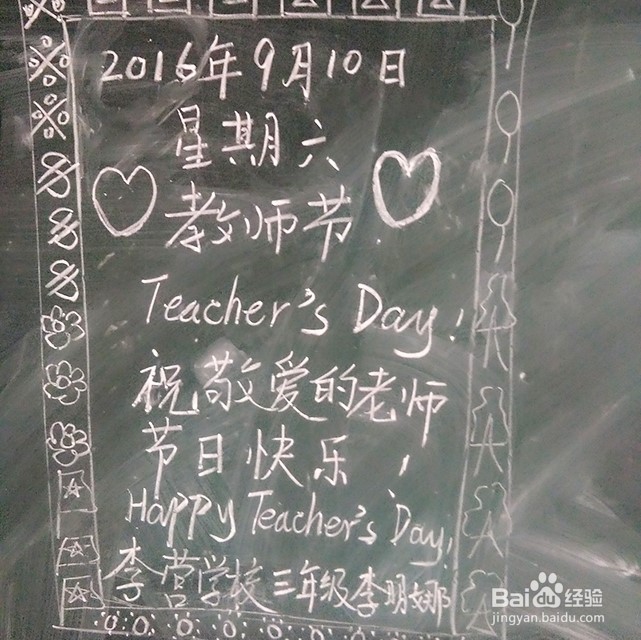 2016年9月10日
星期六
教师节
Teacher's Day!
祝敬爱的老师
节日快乐!
Happy Teacher's Day!
李营学校三年级李明娜
Baidu经验
jingyan.baidu.com